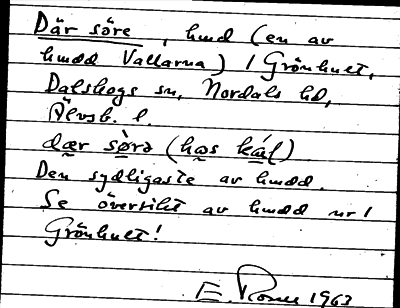 Där söre, hmd (en av
hmdd Vallarna) / Grönhult,
Dalskogs sn, Nordals hd,
Älvsb. l.
dær sørə (hos kál)
Den sydligaste av hmdd.
Se översikt av hmdd nr 1
Grönhult!
E. 1963